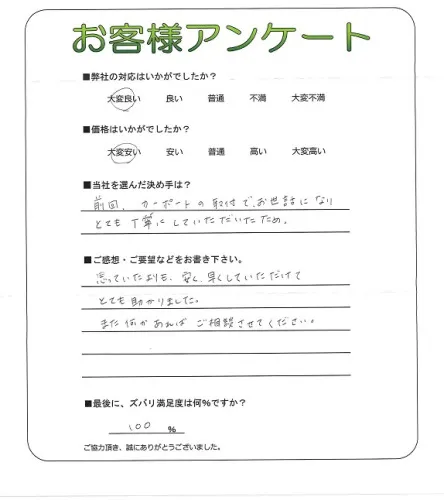 お客様アンケート
■弊社の対応はいかがでしたか？
大変良い 良い 普通 不満 大変不満
■価格はいかがでしたか？
大変安い 安い 普通 高い 大変高い
■当社を選んだ決め手は？
前回、カーポートの取付で、お世話になり
とても丁寧にしていただいたため。
■ご感想・ご要望などをお書き下さい。
思っていたよりも、安く、早くしていただけて
とても助かりました。
また何かあればご相談させてください。
■最後に、ズバリ満足度は何％ですか？
100 ％
ご協力頂き、誠にありがとうございました。